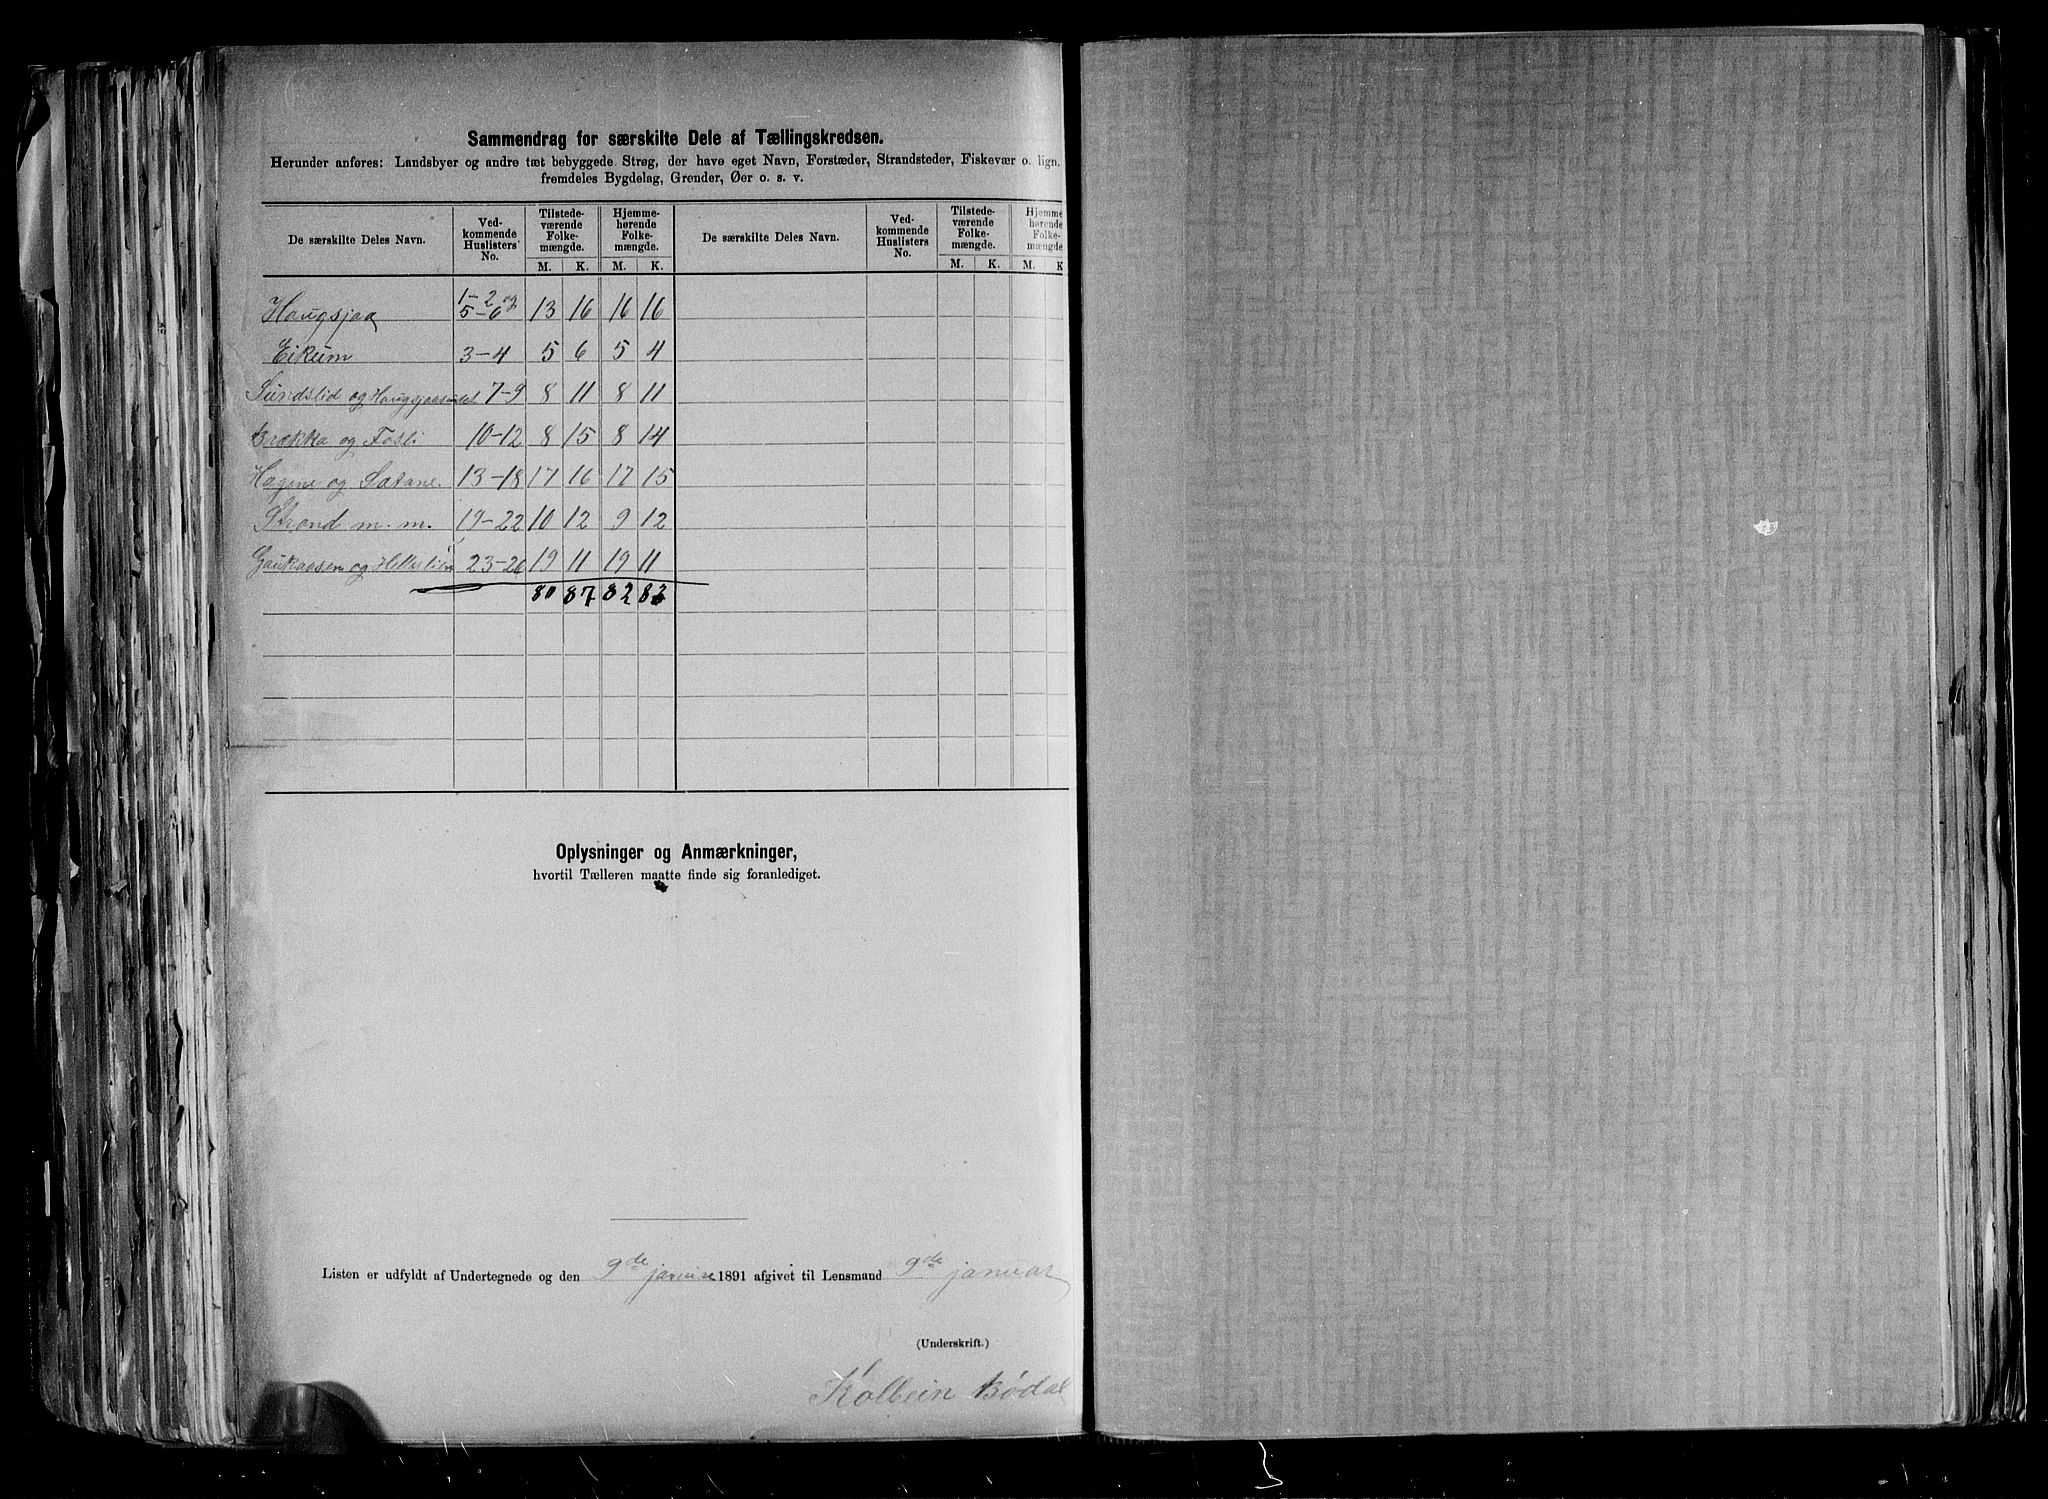 Sammendrag for særskilte Dele af Tællingskredsen.
Herunder anføres: Landsbyer og andre tæt bebyggede Strøg, der have eget Navn, Forstæder, Strandsteder, Fiskevær o. lign.
fremdeles Bygdelag, Grender, Øer o. s. v.
De særskilte Deles Navn. Ved-kommende Huslisters No. Tilstede-værende Folke-mængde. Hjemme-hørende Folke-mængde. De særskilte Deles Navn. Ved-kommende Huslisters No. Tilstede-værende Folke-mængde. Hjemme hørende Folke-mængde
M. K. M. K. M. K. M. K
Haugsjaa 1-2 og 5-6 13 16 16 16
Eikum 3-4 5 6 5 4
Sundslid og Haugsjaasundet 7-9 8 11 8 11
Brækka og Fosli 10-12 8 15 8 14
Hagene og Satane. 13-18 17 16 17 15
Strond m. m. 19-22 10 12 9 12
Gaukaasen og 23-26 19 11 19 11
80 87 82 83
Oplysninger og Anmærkninger,
hvortil Tælleren maatte finde sig foranlediget.
Listen er udfyldt af Undertegnede og den 9de 1891 afgivet til Lensmand 9de januar
(Underskrift.)
Kolbein Bødal